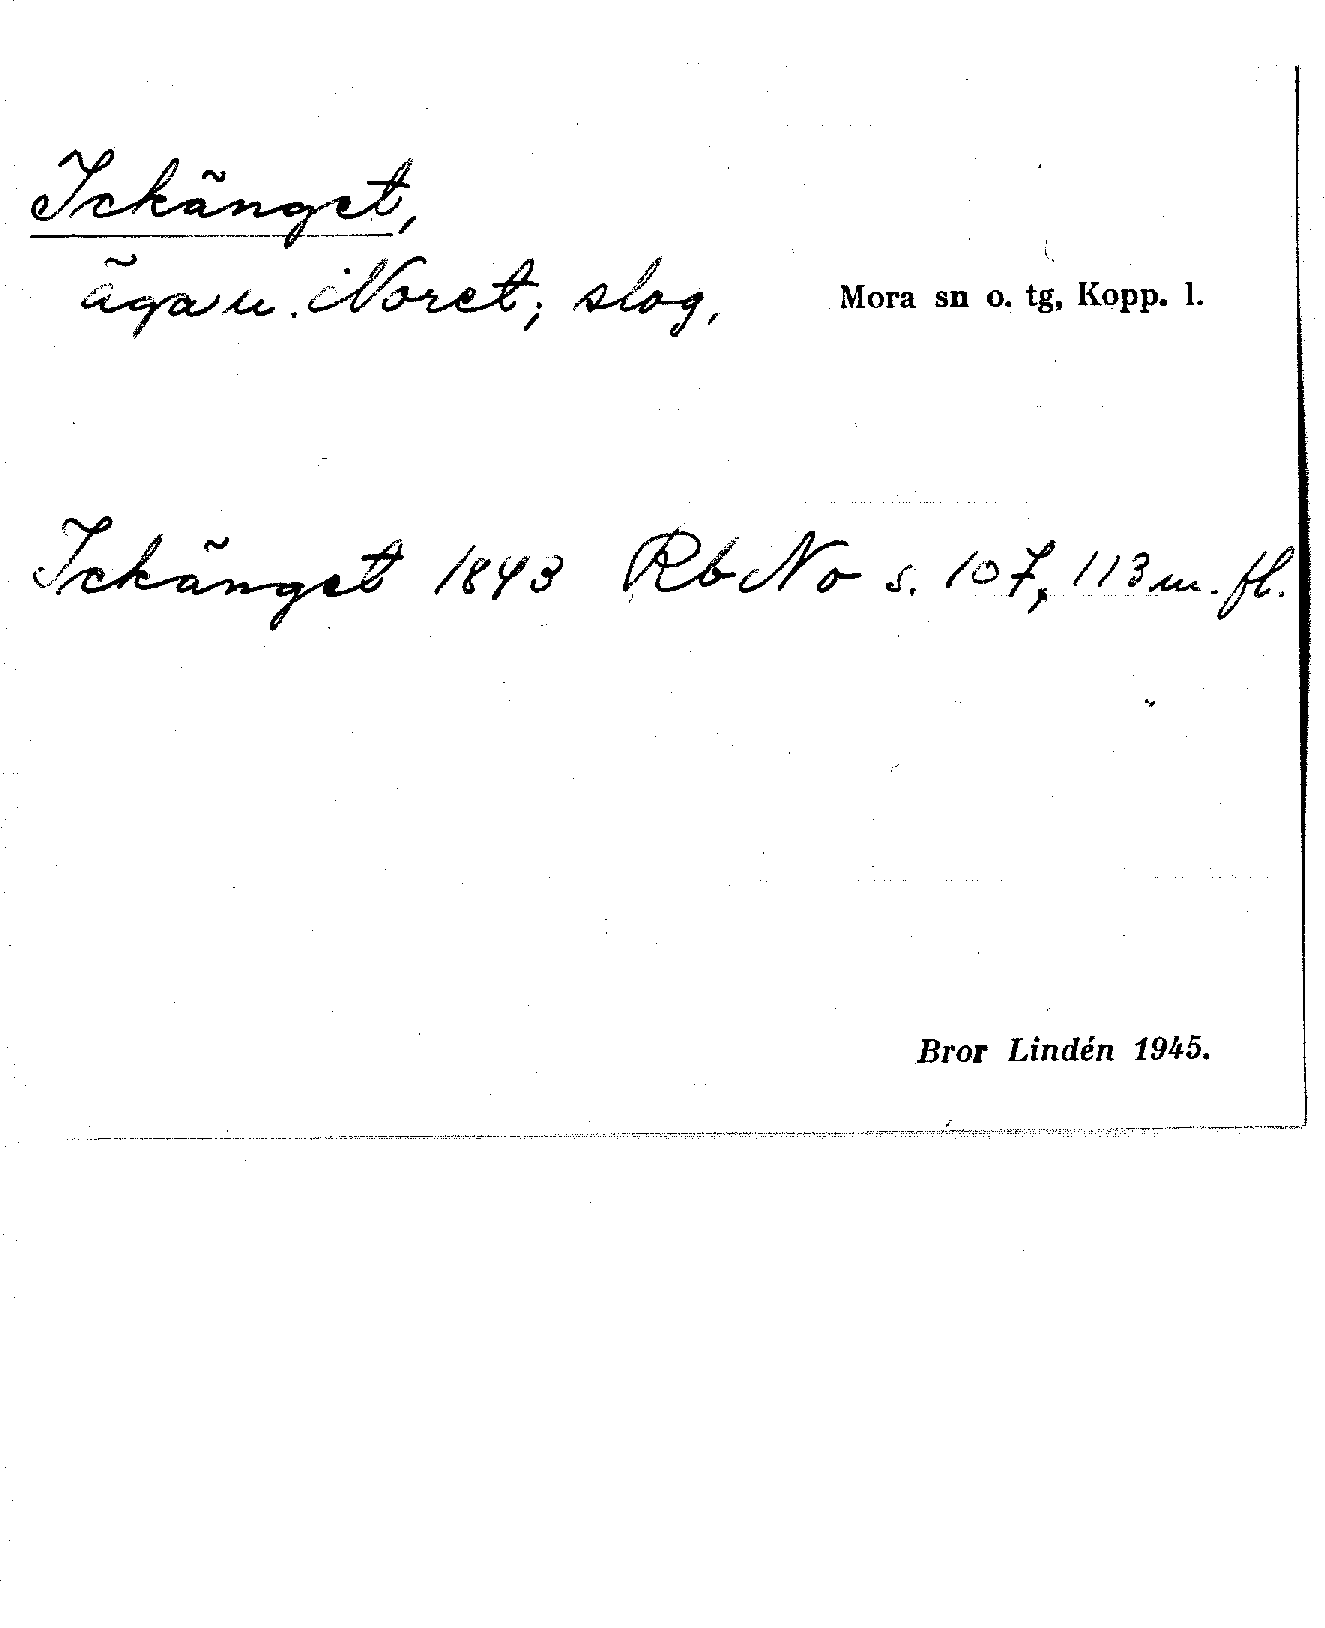 Ickänget,
äga u. Noret; slog,
Mora sn o. tg, Kopp. l.
Ickänget 1843 Rb No s. 107, 113 m. fl.
Bror Lindén 1945.